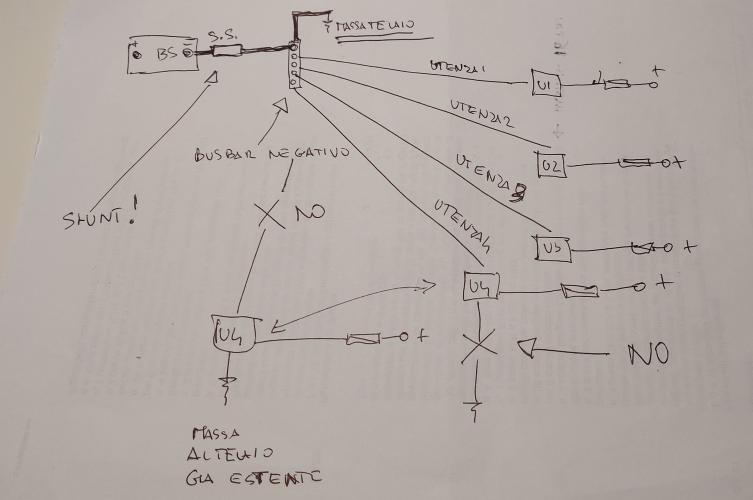 S.S.
MASSA TELAIO
+ BS -
UTENZA 1
U1
+
UTENZA 2
BUSBAR NEGATIVO
U2
+
UTENZA 3
SHUNT!
NO
UTENZA 4
U3
+
U4
+
U4
+
NO
MASSA
AL TELAIO
GIA ESISTENTE